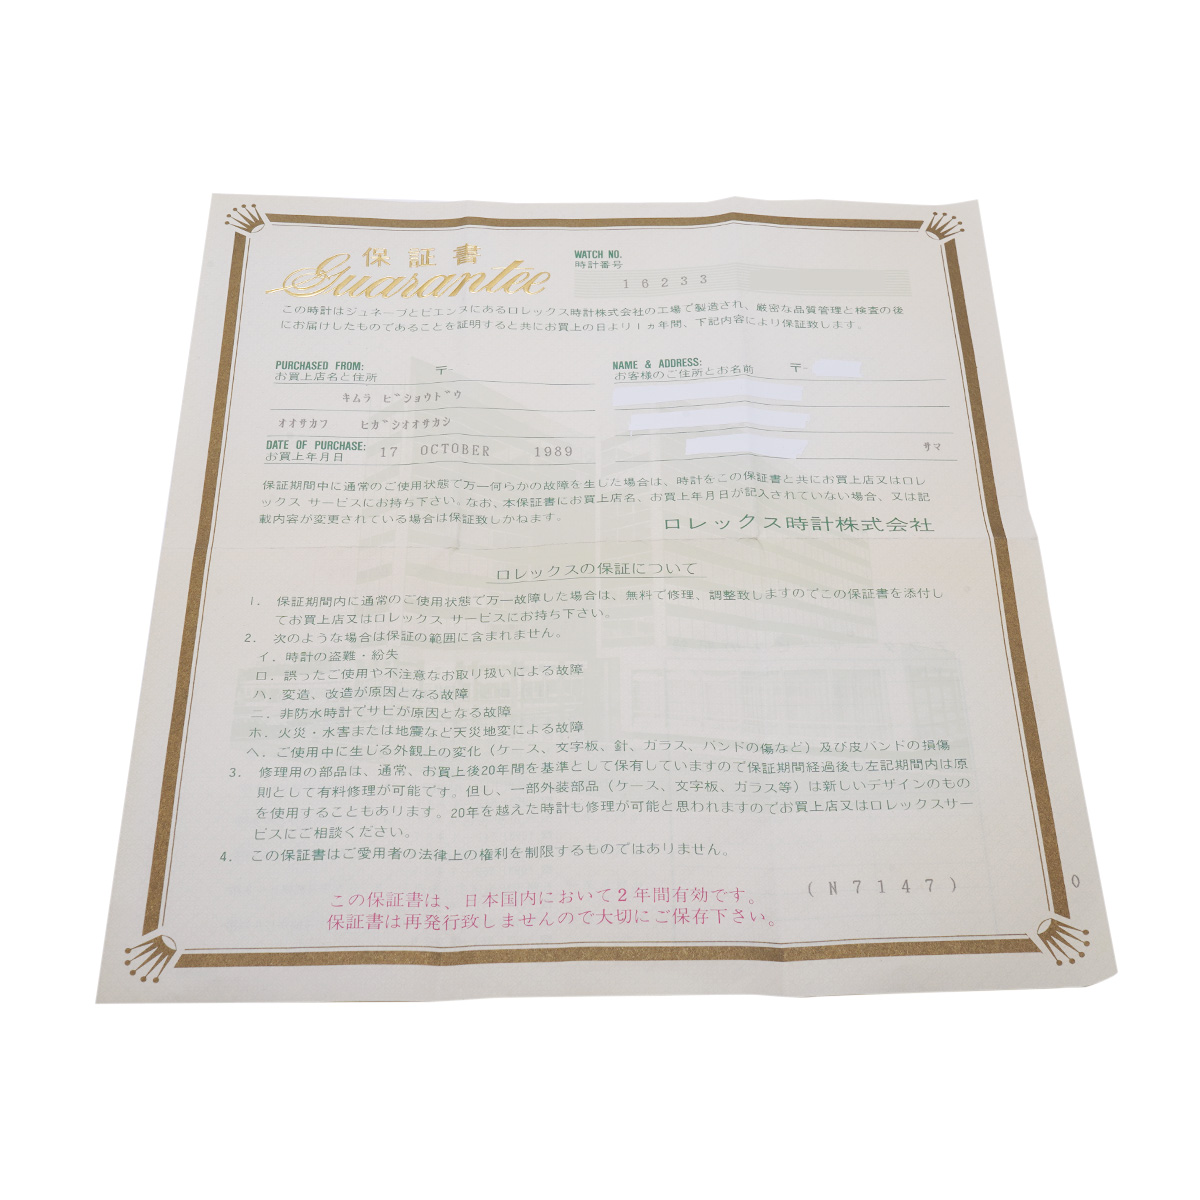 保証書
Guarantee
WATCH NO.
時計番号
16233
この時計はジュネーブとビエンヌにあるロレックス時計株式会社の工場で製造され、厳密な品質管理と検査の後
にお届けしたものであることを証明すると共にお買上の日より1ヵ年間、下記内容により保証致します。
PURCHASED FROM:
お買上店名と住所 〒-
キムラ ビショウドウ
オオサカフ ヒガシオオサカシ
DATE OF PURCHASE:
お買上年月日 17 OCTOBER 1989
NAME & ADDRESS:
お客様のご住所とお名前 〒-
サマ
保証期間中に通常のご使用状態で万一何らかの故障を生じた場合は、時計をこの保証書と共にお買上店又はロレ
ックス サービスにお持ち下さい。なお、本保証書にお買上店名、お買上年月日が記入されていない場合、又は記
載内容が変更されている場合は保証致しかねます。
ロレックス時計株式会社
ロレックスの保証について
1. 保証期間内に通常のご使用状態で万一故障した場合は、無料で修理、調整致しますのでこの保証書を添付し
てお買上店又はロレックス サービスにお持ち下さい。
2. 次のような場合は保証の範囲に含まれません。
イ. 時計の盗難・紛失
ロ. 誤ったご使用や不注意なお取り扱いによる故障
ハ. 変造、改造が原因となる故障
ニ. 非防水時計でサビが原因となる故障
ホ. 火災・水害または地震など天災地変による故障
ヘ. ご使用中に生じる外観上の変化（ケース、文字板、針、ガラス、バンドの傷など）及び皮バンドの損傷
3. 修理用の部品は、通常、お買上後20年間を基準として保有していますので保証期間経過後も左記期間内は原
則として有料修理が可能です。但し、一部外装部品（ケース、文字板、ガラス等）は新しいデザインのもの
を使用することもあります。20年を越えた時計も修理が可能と思われますのでお買上店又はロレックスサー
ビスにご相談ください。
4. この保証書はご愛用者の法律上の権利を制限するものではありません。
この保証書は、日本国内において2年間有効です。
保証書は再発行致しませんので大切にご保存下さい。
(N7147)
0